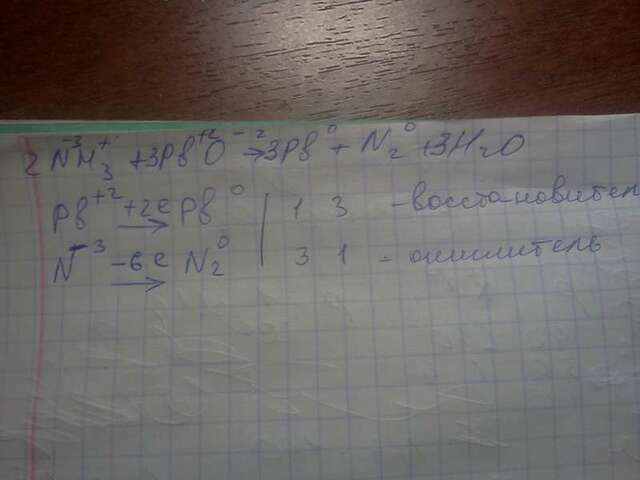 2 N⁻³H₃⁺ + 3Pb⁺²O⁻² → 3Pb⁰ + N₂⁰ + 3H₂O
Pb⁺² +2e → Pb⁰ | 1 3 - восстановител
N⁻³ -6e → N₂⁰ | 3 1 - окислитель